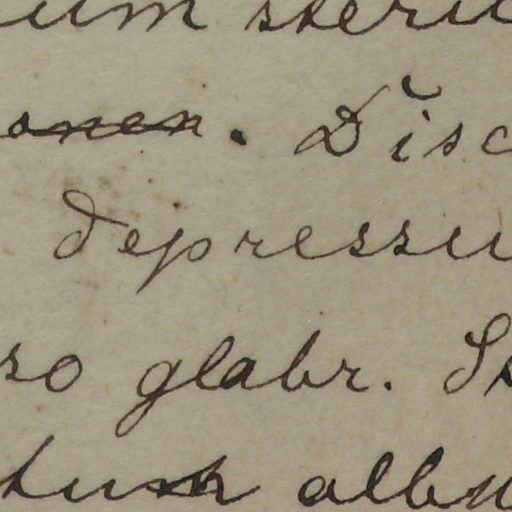 um steri
onen. Disc
depressu
so glabr. St
tum albu